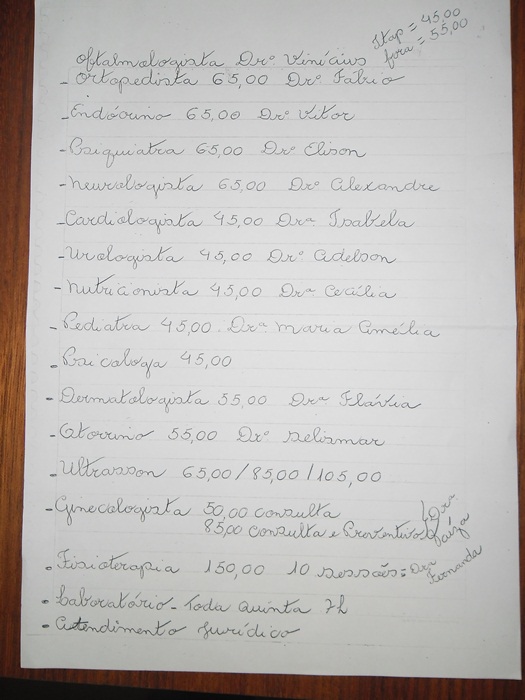 Itap = 45,00
fora = 55,00
oftalmologista Drº Vinícius
- Ortopedista 65,00 Drº Fábio
- Endócrino 65,00 Drº Vitor
- Psiquiatra 65,00 Drº Elison
- Neurologista 65,00 Drº Alexandre
- Cardiologista 45,00 Drª Isabela
- Urologista 45,00 Drº Adelson
- Nutricionista 45,00 Drª Cecília
- Pediatra 45,00. Drª Maria Amélia
- Psicologa 45,00
- Dermatologista 55,00 Drª Flávia
- Otorrino 55,00 Drº Delismar
- Ultrasson 65,00/85,00/105,00
- Ginecologista 50,00 consulta
85,00 consulta e Preventivo
Drª
Laíza
- Fisioterapia 150,00 10 sessões = Drª
Fernanda
- Laboratório - Toda Quinta 7h
- Atendimento Jurídico